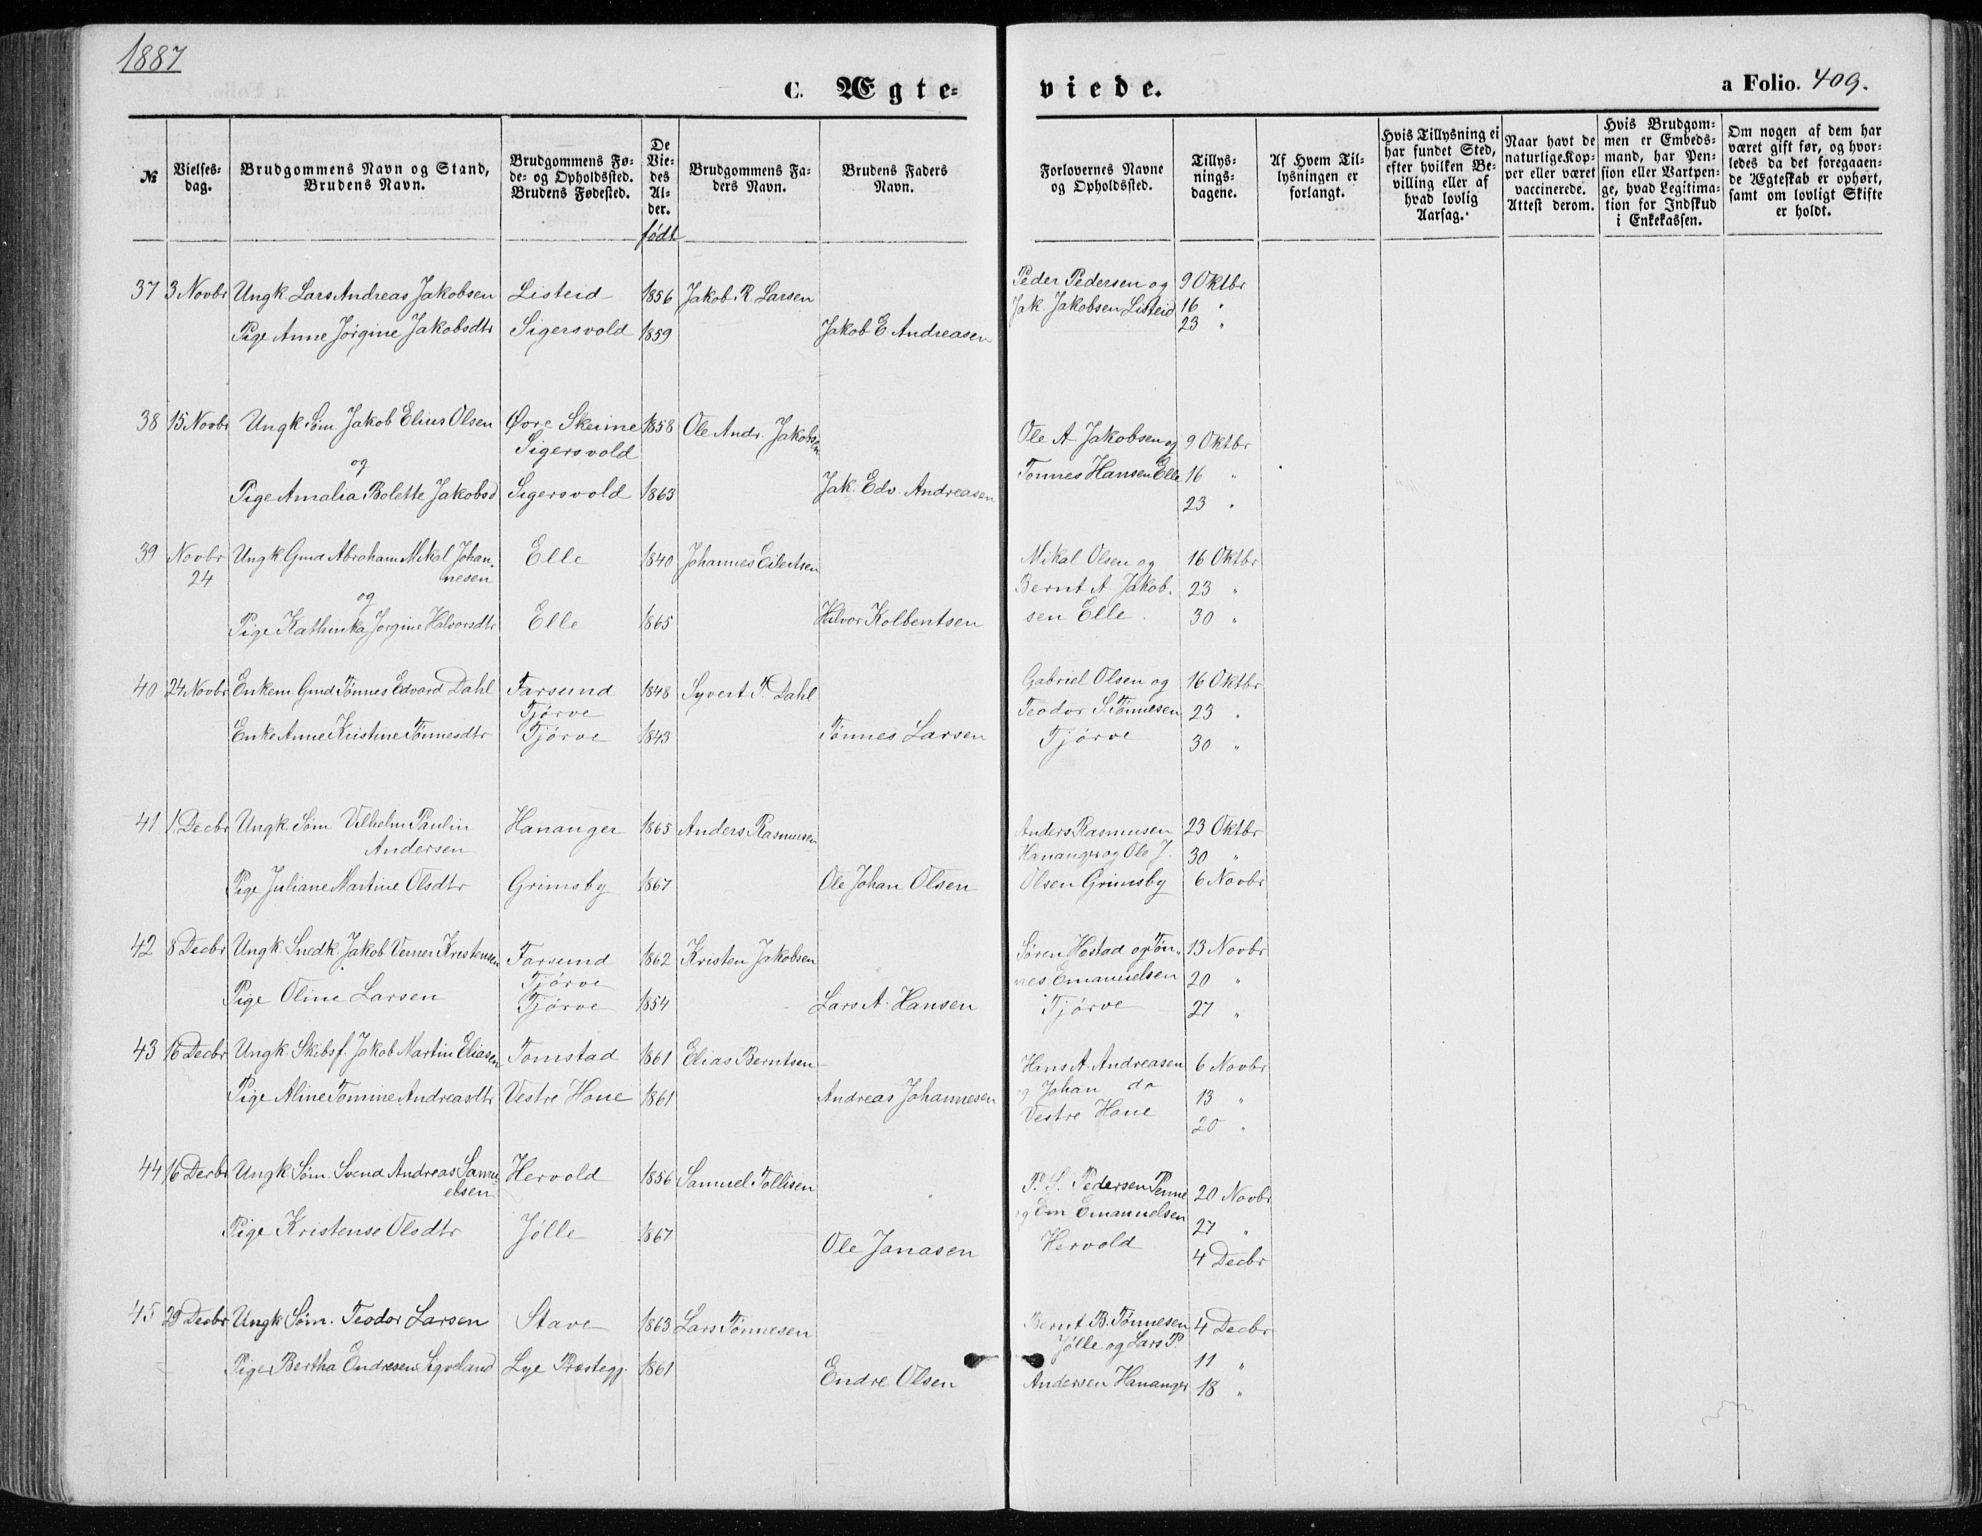 1887
C. Ægte-
viede.
a Folio. 409.
№
Vielses-
dag.
Brudgommens Navn og Stand,
Brudens Navn.
Brudgommens Fø-
de- og Opholdssted.
Brudens Fødested.
De
Vie-
des
Al-
der.
født
Brudgommens Fa-
ders Navn.
Brudens Faders
Navn.
Forlovernes Navne
og Opholdssted.
Tillys-
nings-
dagene.
Af Hvem Til-
lysningen er
forlangt.
Hvis Tillysning ei
har fundet Sted,
efter hvilken Be-
villing eller af
hvad lovlig
Aarsag.
Naar havt de
naturlige Kop-
per eller været
vaccinerede.
Attest derom.
Hvis Brudgom-
men er Embeds-
mand, har Pen-
sion eller Vartpen-
ge, hvad Legitima-
tion for Indskud
i Enkekassen.
Om nogen af dem har
været gift før, og hvor-
ledes da det foregaaen-
de Ægteskab er ophørt,
samt om lovligt Skifte
er holdt.
37 3 Novbr Ungk. Lars Andreas Jakobsen Listeid 1856 Jakob R. Larsen Peder Pedersen og 9 Oktbr
Jak. Jakobsen Listeid 16 "
Pige Anne Jørgine Jakobsdtr Sigersvold 1859 Jakob E Andreasen 23 "
38 15 Novbr Ungk. Søm. Jakob Elius Olsen Øvre Skeime 1858 Ole Andr. Jakobsen Ole A Jakobsen og 9 Oktbr
Sigersvold
og Tønnes Hansen Elle 16 "
Pige Amalia Bolette Jakobsd Sigersvold 1863 Jak. Edv. Andreasen
23 "
39 Novbr Ungk. Gmd Abraham Mikal Johan- Elle 1840 Johannes Eilertsen Mikal Olsen og 16 Oktbr
24 nesen Bernt A. Jakob- 23 "
og
Pige Kathinka Jørgine Halvorsdtr Elle 1865 Halvor Kolbentsen sen Elle. 30 "
40 24 Novbr Enkem. Gmd Tønnes Edvard Dahl Farsund 1848 Syvert T. Dahl Gabriel Olsen og 16 Oktbr
Tjørve Teodor S. Tønnesen 23 "
Enke Anne Kristine Tønnesdtr Tjørve 1843 Tønnes Larsen Tjørve 30 "
41 1 Decbr Ungk. Søm Vilhelm Paulin Hananger 1865 Anders Rasmusen Anders Rasmusen 23 Oktbr
Andersen Hananger og Ole J. 30 "
Pige Juliane Martine Olsdtr Grimsby 1867 Ole Johan Olsen Olsen Grimsby 6 Novbr
42 8 Decbr Ungk. Snedk. Jakob Verner Kristensen Farsund 1862 Kristen Jakobsen Søren Hostad og Tøn- 13 Novbr
Tjørve nes Emanuelsen 20 "
Pige Oline Larsen Tjørve 1854 Lars A. Hansen Tjørve 27 "
43 16 Decbr Ungk. Skibsf. Jakob Martin Eliasen Tomstad 1861 Elias Berntsen Hans A. Andreasen 6 Novbr
Pige Aline Tomine Andreasdtr Vestre Hone 1861 Andreas Johannesen og Johan do 13 "
Vestre Hone 20 "
44 16 Decbr Ungk. Søm. Svend Andreas Samu- Hervold 1856 Samuel Tollisen P. S. Pedersen Penne 20 Novbr
elsen og Em Emanuelsen
Pige Kristense Olsdtr Jølle 1867 Ole Janasen 27 "
Hervold 4 Decbr
45 29 Decbr Ungk. Søm. Teodor Larsen Stave 1863 Lars Tønnesen Bernt B. Tønnesen 4 Decbr
Jølle og Lars P. 11 "
Pige Bertha Endresen Sigveland Lye Præstegj. 1861 Endre Olsen Andersen Hananger 18 "